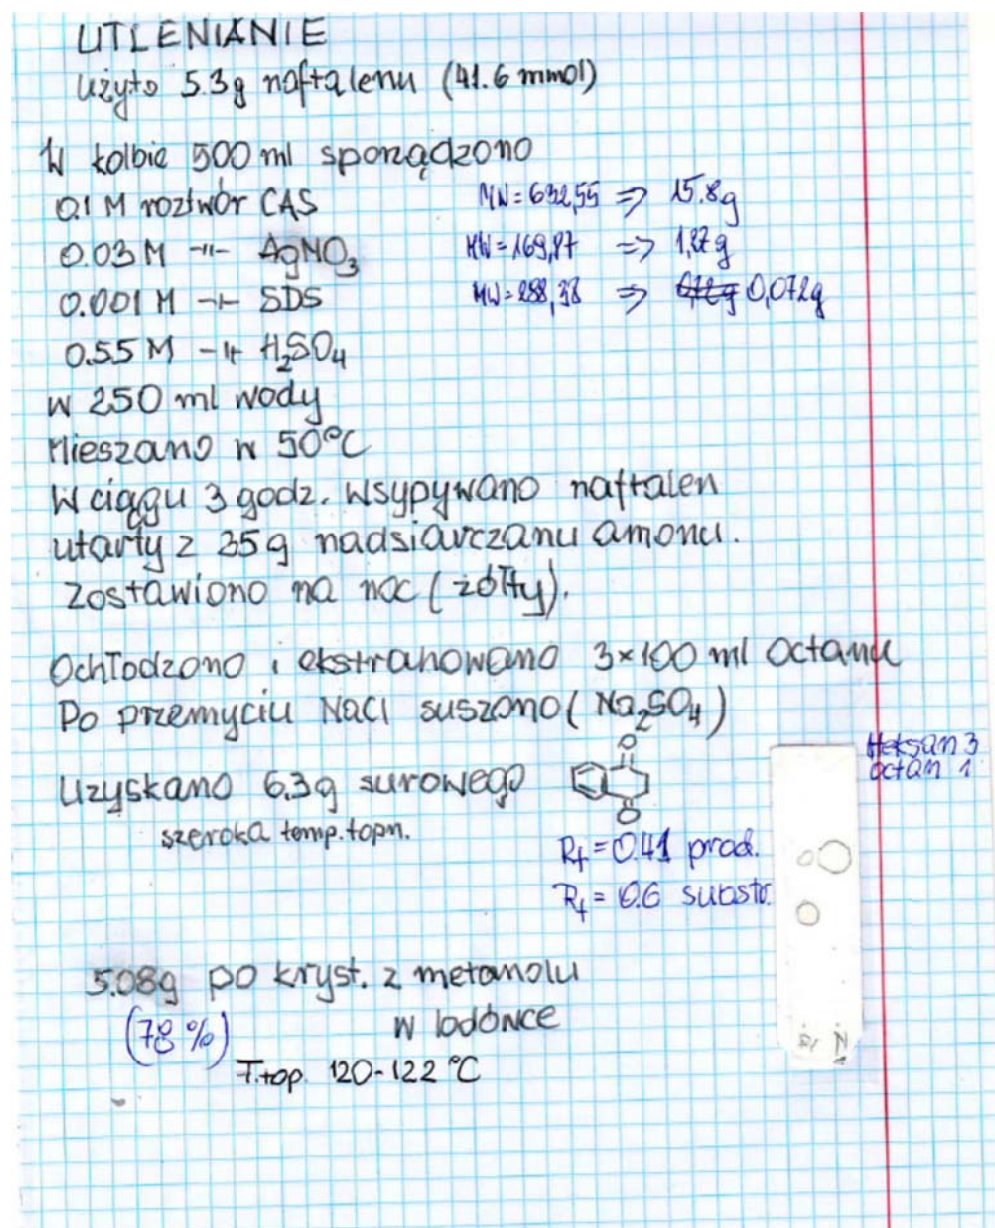 UTLENIANIE
Użyto 5.3g naftalenu (41.6 mmol)
W kolbie 500 ml sporządzono
0.1 M roztwór CAS MW=632,55 => 15.8g
0.03 M -"- AgNO3 MW=169,87 => 1,27g
0.001 M -"- SDS MW=288,38 => 0,72g 0,072g
0.55 M -"- H2SO4
w 250 ml wody
Mieszano w 50°C
W ciągu 3 godz. wsypywano naftalen
utarty z 35g nadsiarczanu amonu.
Zostawiono na noc (żółty).
Ochłodzono i ekstrahowano 3×100 ml octanu
Po przemyciu NaCl suszono (Na2SO4)
Heksan 3
octan 1
Uzyskano 6.3g surowego
O
O
szeroka temp. topn.
Rf = 0.41 prod.
Rf = 0.6 substr.
5.08g po kryst. z metanolu
w lodówce
(78 %)
T.top. 120-122 °C
N